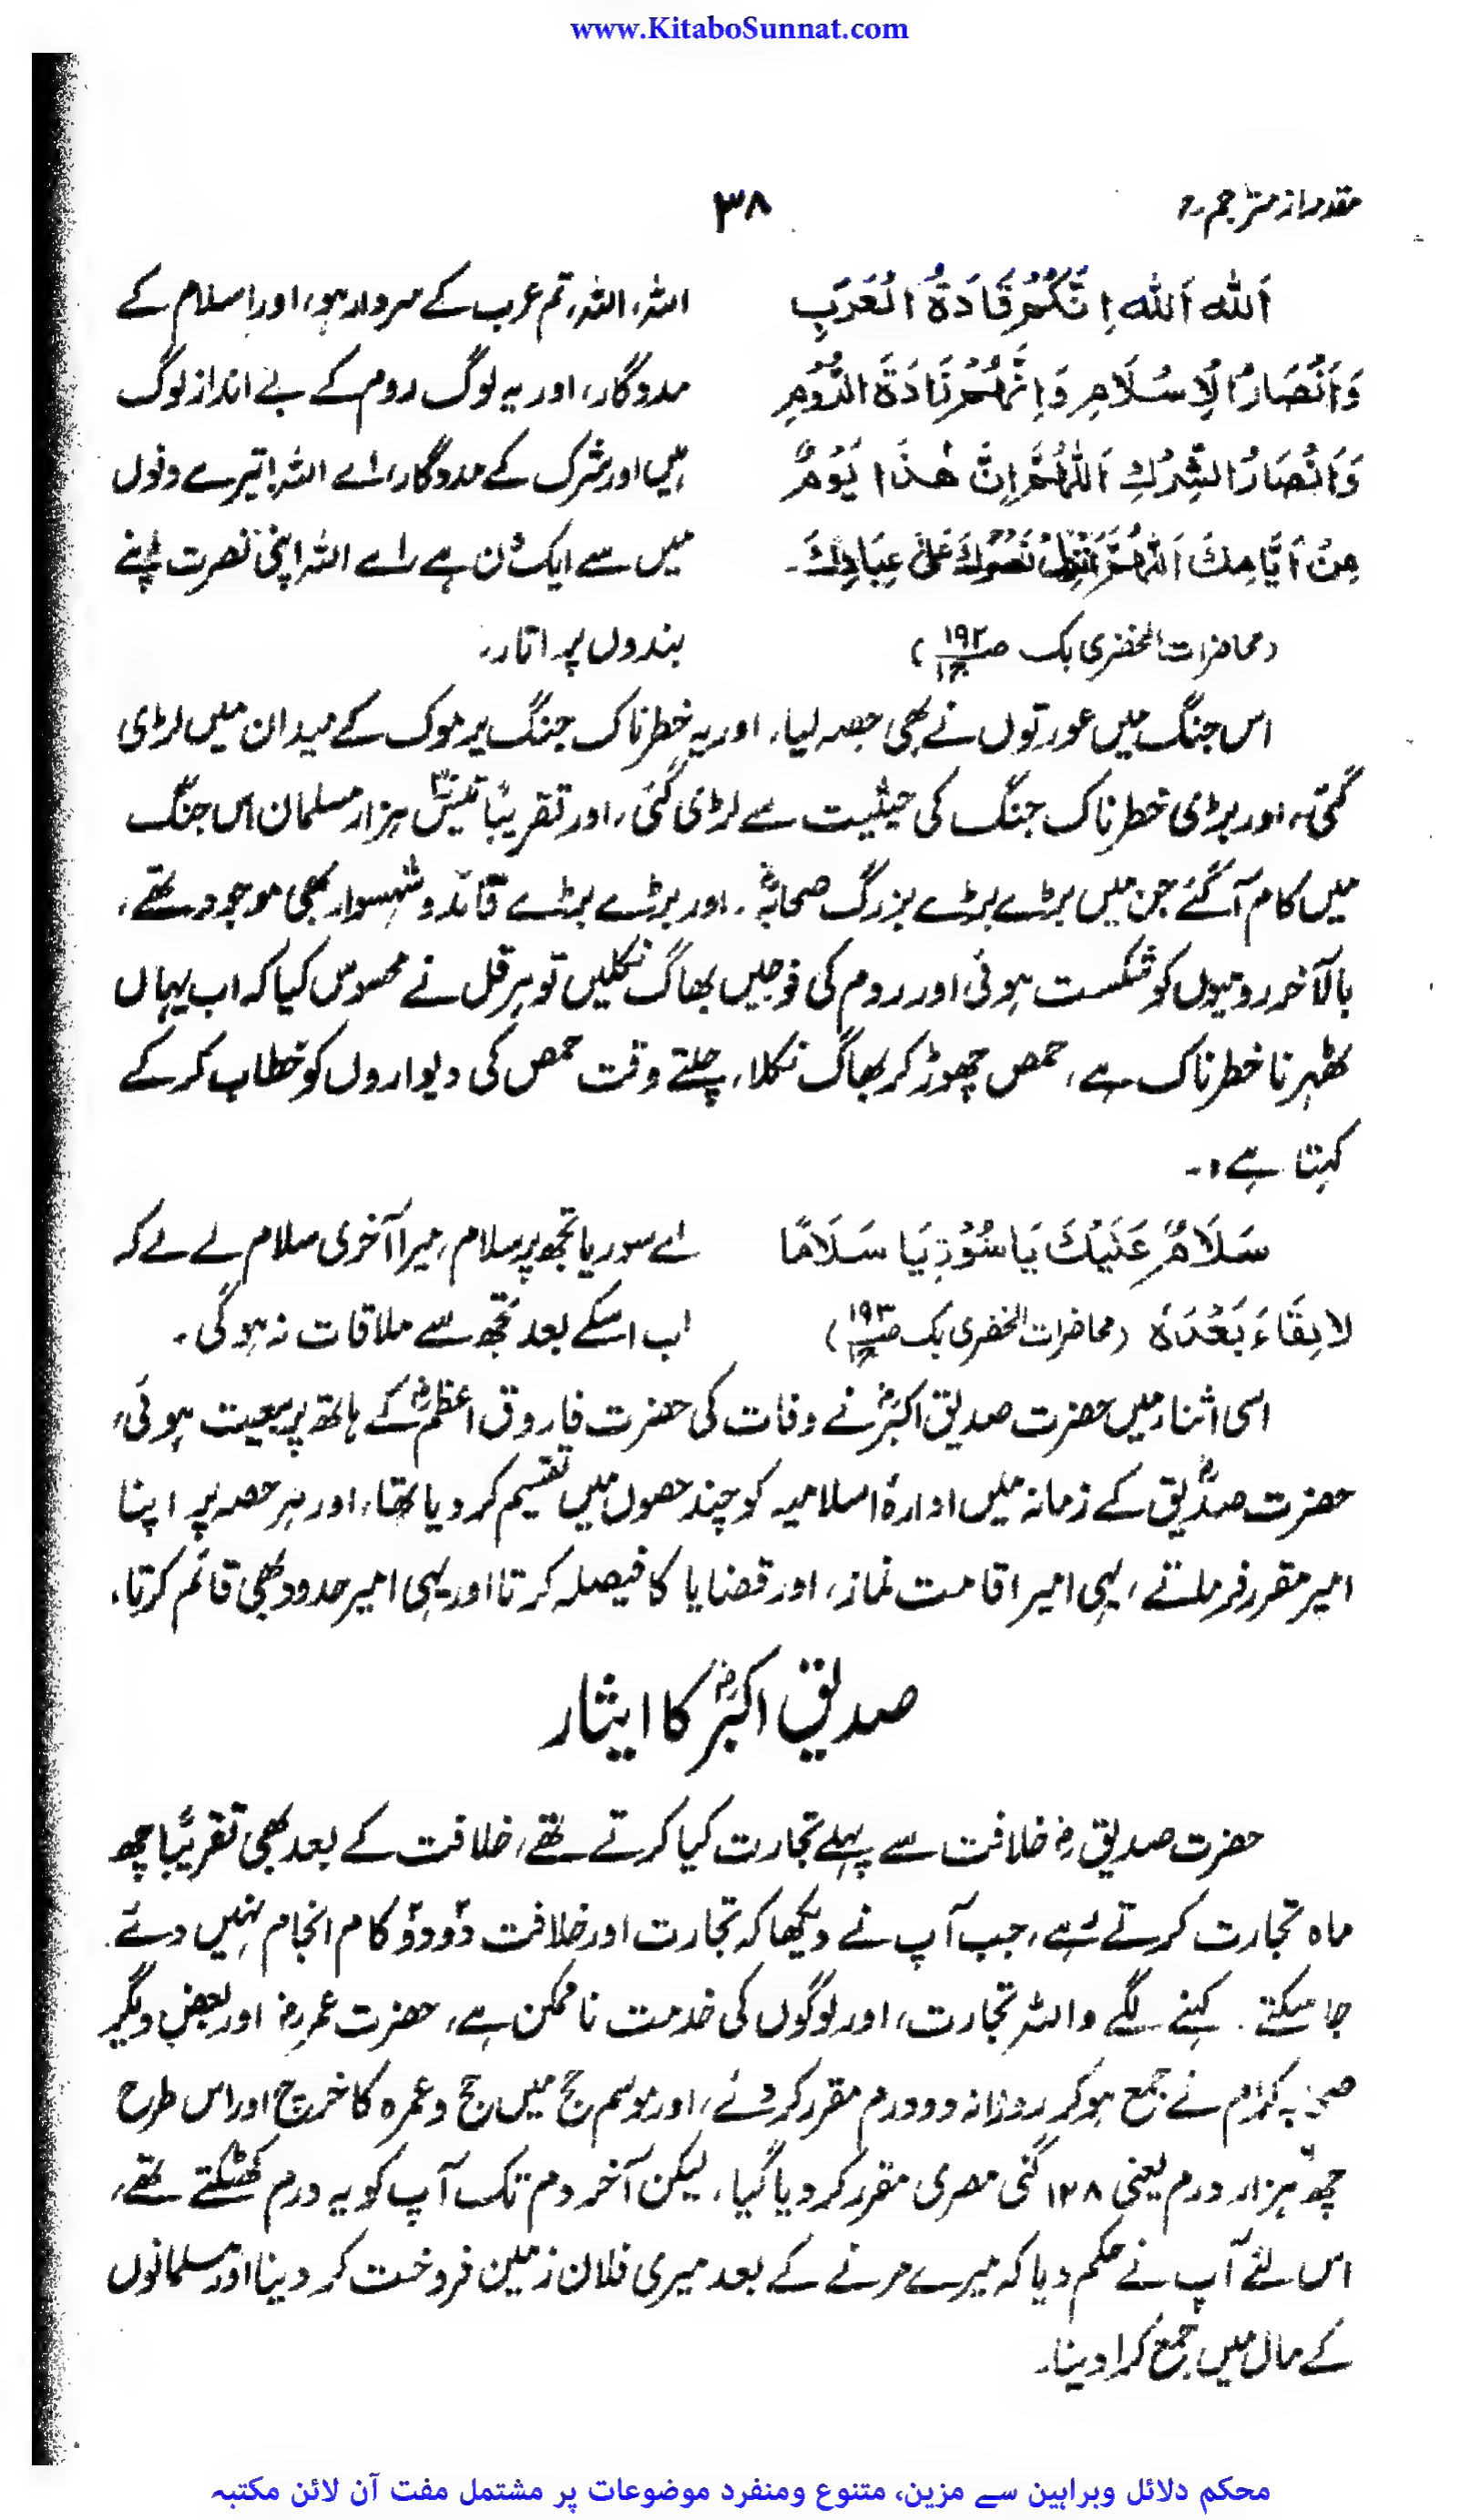 www.KitaboSunnat.com
مقدمہ از مترجم ۳۸
اَللہ اَللہ اِنَّکُمْ قَادَۃُ الْعَرَبِ
وَاَنْصَارُ الْاِسْلَامِ وَاِنَّہُمْ نَادَۃُ الرُّوْمِ
وَاَنْصَارُ الشِّرْكِ اَللّٰہُمَّ اِنَّ ھٰذَا یَوْمٌ
مِنْ اَیَّامِكَ اَللّٰہُمَّ نَصْرَكَ عَلٰی عِبَادِكَ۔
(محاضرات الخضری بک ص۱۹۲)
اللہ، اللہ، تم عرب کے سردار ہو، اور اسلام کے
مددگار، اور یہ لوگ روم کے بے انداز لوگ
ہیں اور شرک کے مددگار، اے اللہ! تیرے دنوں
میں سے ایک دن ہے، اے اللہ اپنی نصرت اپنے
بندوں پر اتار۔
اس جنگ میں عورتوں نے بھی حصہ لیا، اور یہ خطرناک جنگ یرموک کے میدان میں لڑی
گئی، اور بڑی خطرناک جنگ کی حیثیت سے لڑی گئی، اور تقریباً تیس ہزار مسلمان اس جنگ
میں کام آگئے جن میں بڑے بڑے بزرگ صحابہؓ، اور بڑے بڑے قائد و شہسوار بھی موجود تھے،
بالآخر رومیوں کو شکست ہوئی اور روم کی فوجیں بھاگ نکلیں تو ہرقل نے محسوس کیا کہ اب یہاں
ٹھہرنا خطرناک ہے، حمص چھوڑ کر بھاگ نکلا، چلتے وقت حمص کی دیواروں کو خطاب کر کے
کہتا ہے:۔
سَلَامٌ عَلَیْكَ یَا سُوْرِیَا سَلَامًا
لَا لِقَاءَ بَعْدَہٗ (محاضرات الخضری بک ص۱۹۳)
اے سوریا تجھ پر سلام، میرا آخری سلام لے لے کہ
اب اسکے بعد تجھ سے ملاقات نہ ہوگی۔
اسی اثناء میں حضرت صدیق اکبرؓ نے وفات کی حضرت فاروق اعظمؓ کے ہاتھ پر بیعت ہوئی،
حضرت صدیقؓ کے زمانہ میں ادارۂ اسلامیہ کو چند حصوں میں تقسیم کر دیا تھا، اور ہر حصہ پر اپنا
امیر مقرر فرماتے، یہی امیر اقامت نماز، اور قضایا کا فیصلہ کرتا اور یہی امیر حدود بھی قائم کرتا،
صدیق اکبرؓ کا ایثار
حضرت صدیق رض خلافت سے پہلے تجارت کیا کرتے تھے، خلافت کے بعد بھی تقریباً چھ
ماہ تجارت کرتے رہے، جب آپ نے دیکھا کہ تجارت اور خلافت دو دو کام انجام نہیں دئے
جا سکتے۔ کہنے لگے واللہ تجارت، اور لوگوں کی خدمت ناممکن ہے، حضرت عمر رض اور بعض دیگر
صحابہ کرام نے جمع ہو کر روزانہ دو درم مقرر کر دئے، اور موسم حج میں حج و عمرہ کا خرچ اور اس طرح
چھ ہزار درم یعنی ۱۲۸ گنی مصری مقرر کر دیا گیا، لیکن آخر دم تک آپ کو یہ درم کھٹکتے تھے،
اس لئے آپ نے حکم دیا کہ میرے مرنے کے بعد میری فلاں زمین فروخت کر دینا اور مسلمانوں
کے مال میں جمع کرا دینا۔
محکم دلائل وبراہین سے مزین، متنوع ومنفرد موضوعات پر مشتمل مفت آن لائن مکتبہ